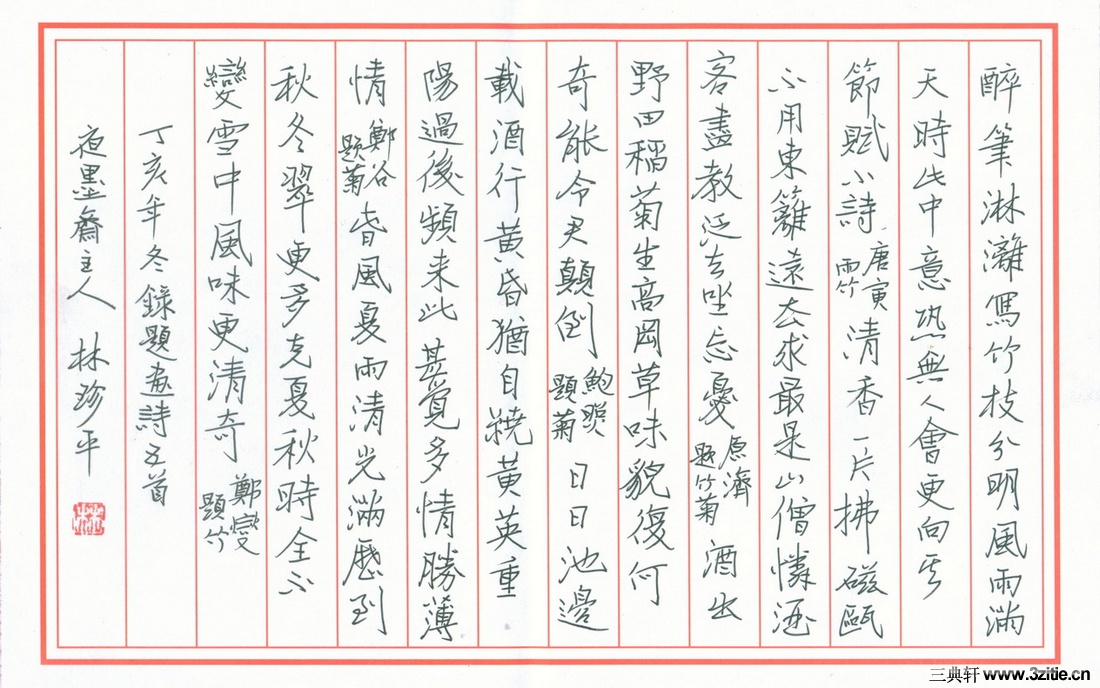 醉筆淋灕寫竹枝分明風雨滿
天時此中意恐無人會更向其
節賦小詩 唐寅雨竹 清香一片拂磁甌
不用東籬遠去求最是山僧憐酒
客盡教泛去坐忘憂 原濟題竹菊 酒出
野田稻菊生高岡草味貌復何
奇能令君顛倒 鮑照題菊 日日池邊
載酒行黃昏猶自繞黃英重
陽過後頻来此甚覺多情勝薄
情 鄭谷題菊 春風夏雨清光滿歷到
秋冬翠更多克夏秋時全不
變雪中風味更清奇 鄭燮題竹
丁亥年冬錄題畫詩五首
夜墨齋主人 林珍平
林
三典轩 www.3zitie.cn